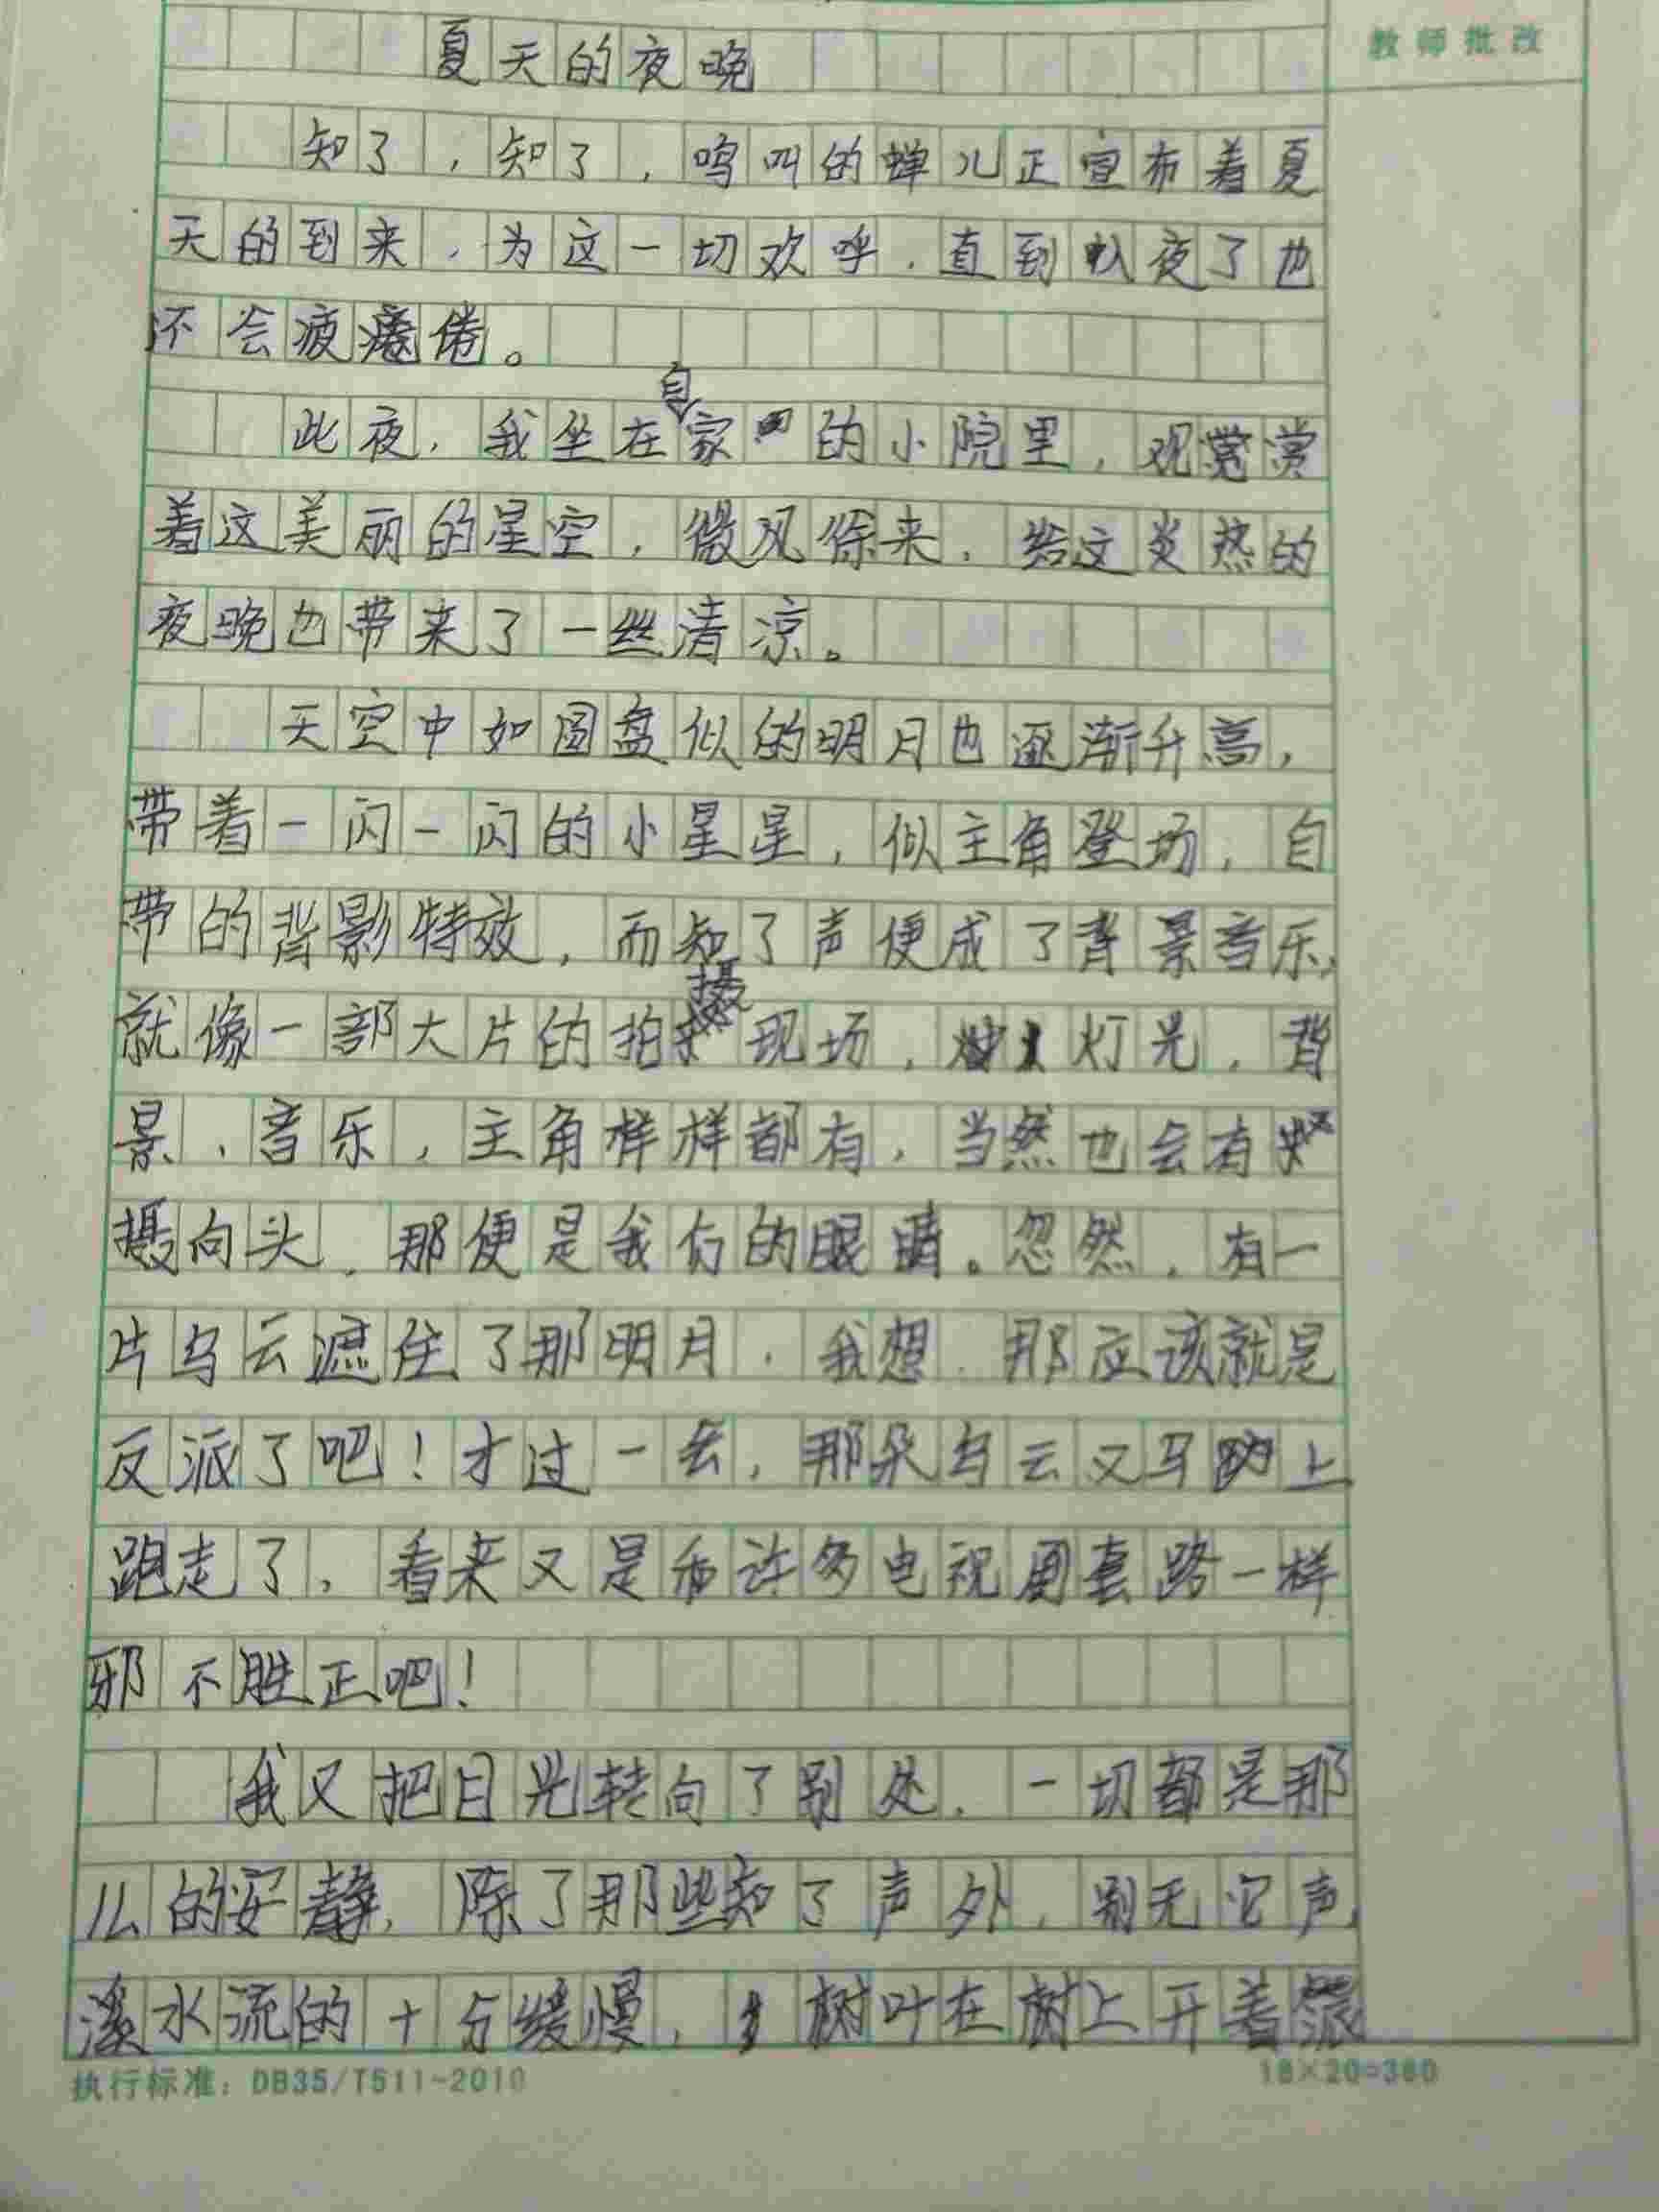 教师批改
夏天的夜晚
知了，知了，鸣叫的蝉儿正宣布着夏
天的到来，为这一切欢呼，直到夜了也
不会疲倦。
此夜，我坐在自家的小院里，观赏
着这美丽的星空，微风徐来，给这炎热的
夜晚也带来了一丝清凉。
天空中如圆盘似的明月也逐渐升高，
带着一闪一闪的小星星，似主角登场，自
带的背影特效，而知了声便成了背景音乐，
就像一部大片的拍摄现场，灯光，背
景，音乐，主角样样都有，当然也会有
摄向头，那便是我们的眼睛。忽然，有一
片乌云遮住了那明月，我想，那应该就是
反派了吧！才过一会，那朵乌云又马上
跑走了，看来又是和许多电视剧套路一样
邪不胜正吧！
我又把目光转向了别处，一切都是那
么的安静，除了那些知了声外，别无它声，
溪水流的十分缓慢，树叶在树上开着
执行标准：DB35/T511-2010
18×20=360